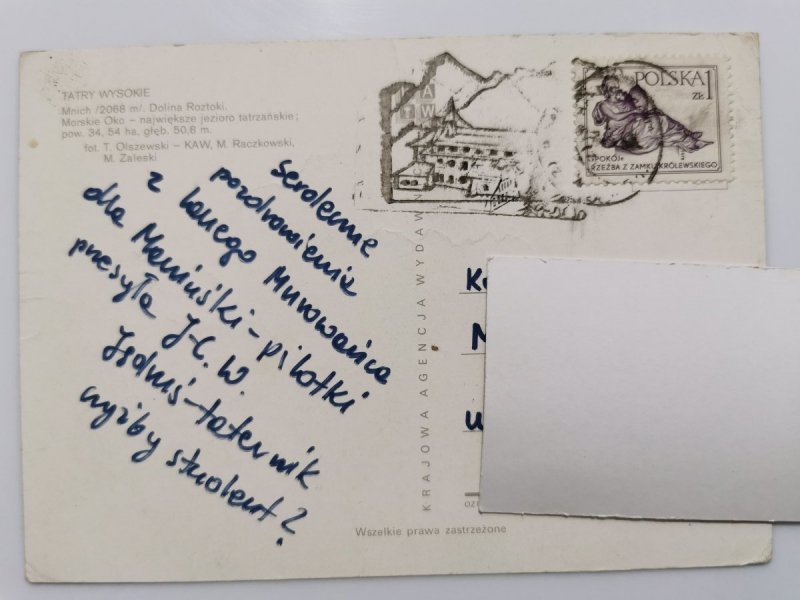 TATRY WYSOKIE
Mnich /2068 m/. Dolina Roztoki.
Morskie Oko – największe jezioro tatrzańskie;
pow. 34, 54 ha, głęb. 50,8 m.
fot. T. Olszewski – KAW, M. Raczkowski,
M. Zaleski
POLSKA 1
ZŁ
"POKÓJ"
RZEŹBA Z ZAMKU KRÓLEWSKIEGO
Serdeczne
pozdrowienia
z Murowańca
dla Mamuśki-pilotki
przesyła J.C.W.
Jasdmiś-taternik
czyżby student?
KRAJOWA AGENCJA WYDAW
K
N
Wszelkie prawa zastrzeżone